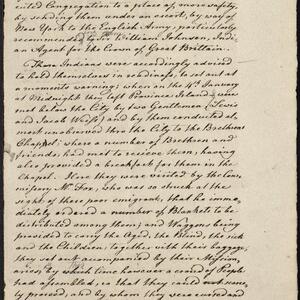 cuted Congregation to a place of more safety,
by sending them under an escort, by way of
New York to the English Army, particularly
recommended to Sir William Johnson, Indi-
an Agent for the Crown of Great Brittain.
These Indians were accordingly advised
to hold themselves in readiness, to set out at
a moments warning: when on the 4th January
at Midnight they left Province Island, were
met below the City by two Gentlemen (Lewis
and Jacob Weiss) and by them conducted al-
most unobserved thro the City to the Brethrens
Chappel; where a number of Brethren and
friends, had met to receive them, having
also, provided a breakfast for them in the
Chapel. Here they were visited by the Com-
missary Mr. Fox, who was so struck at the
sight of these poor emigrants, that he imme-
diately ordered a number of Blankets to be
distributed among them; and Waggons being
provided to carry the Aged, the Blind, the sick
and the Children, together with their baggage;
they set out accompanied by their Mission-
aries, by which time however a crowd of People
had assembled, so that they could not easi-
ly proceed, and by whom they were cursed